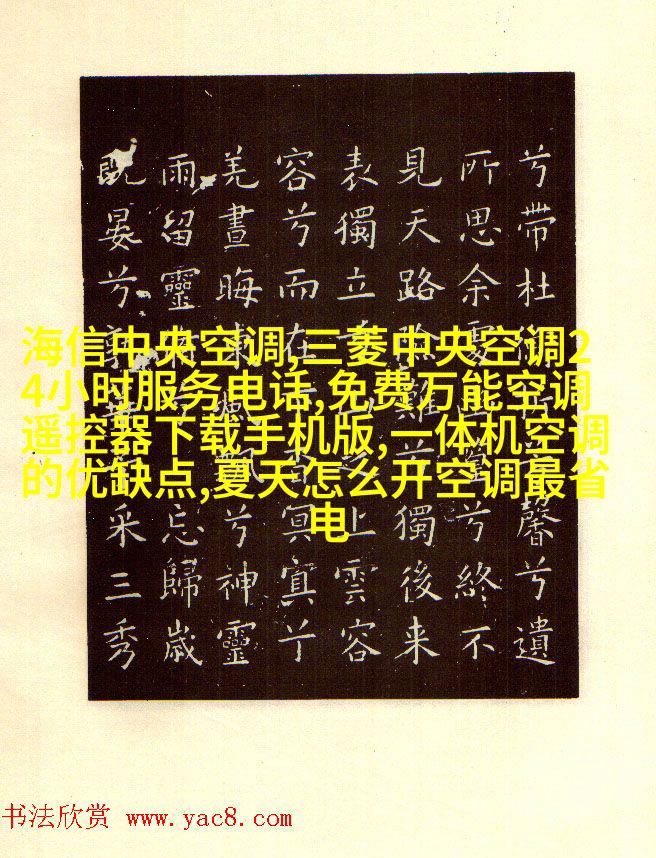 兮帶杜馨兮遺
所思余處兮終不
見天路險難獨後来
表獨立上雲容
容兮而在冥冥兮
羌晝晦東風飄兮神靈
雨留靈忘歸歲
既晏兮采三秀
海信中央空调,三菱中央空调2
4小时服务电话,免费万能空调
遥控器下载手机版,一体机空调
的优缺点,夏天怎么开空调最省
电
书法欣赏 www.yac8.com